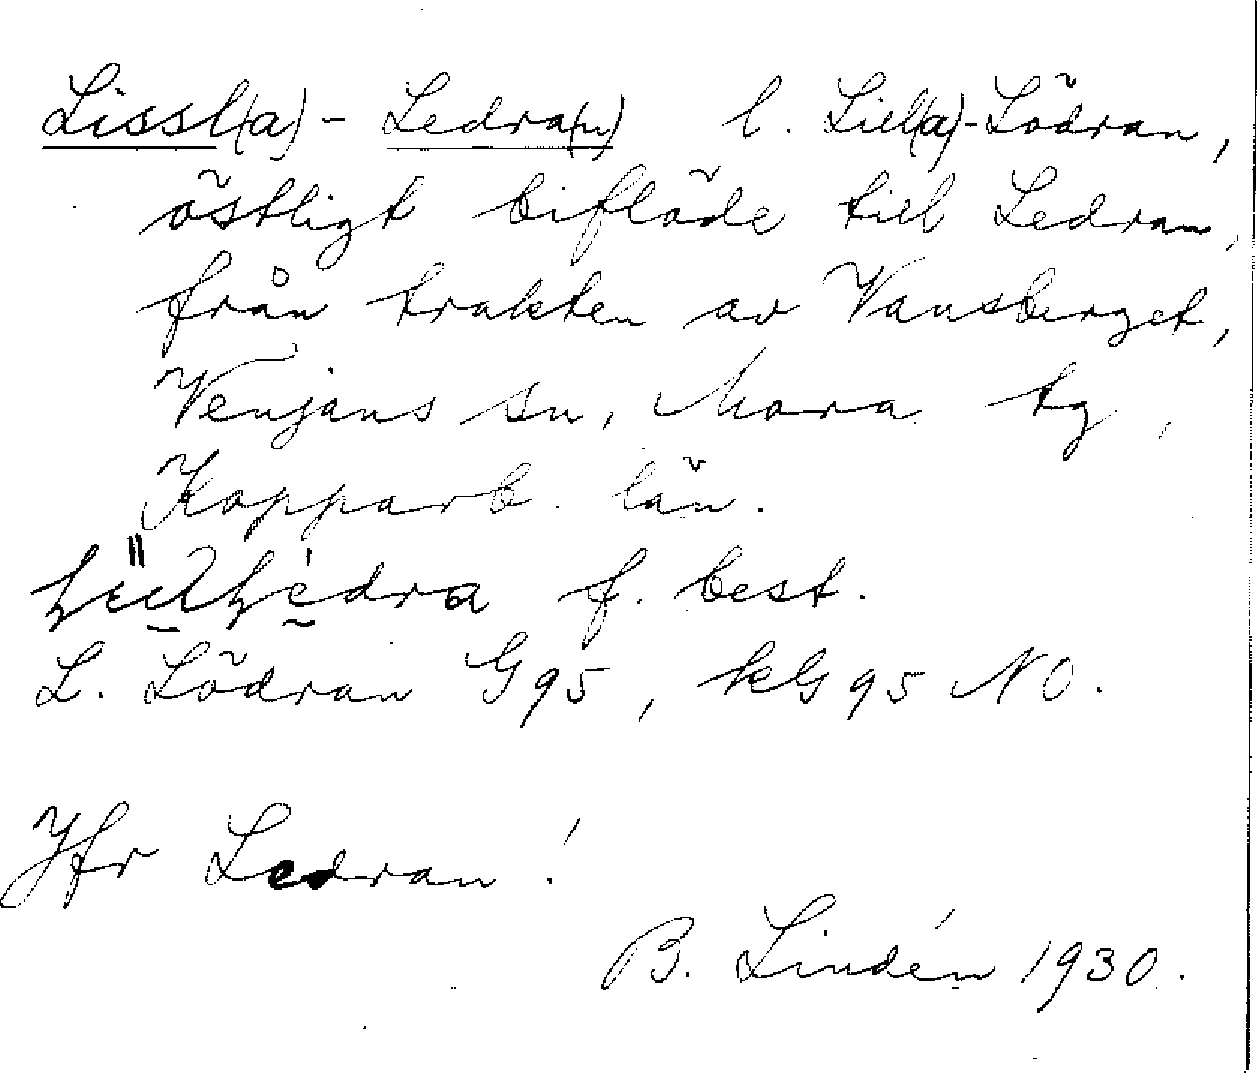 Lissl(a)-Ledra(n) l. Lill(a)-Lödran,
östligt biflöde till Ledran,
från trakten av Vansberget,
Venjans sn, Mora tg,
Kopparb. län.
f. best.
L. Lödran G95, kG 95 NO.
Jfr Ledran!
B. Lindén 1930.